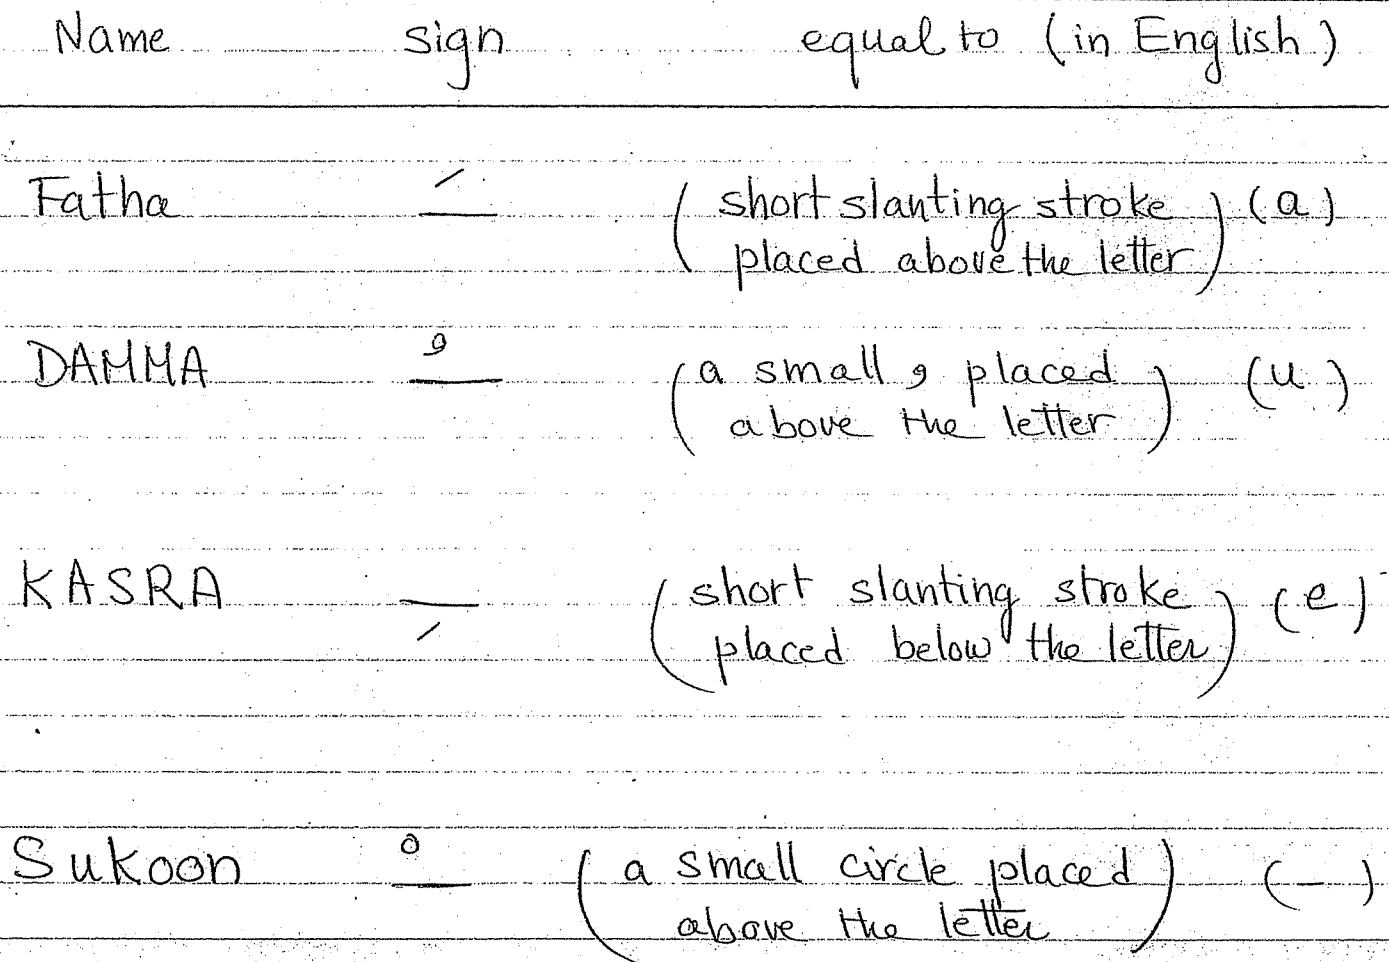 Name sign equal to (in English)
Fatha َ (short slanting stroke placed above the letter) (a)
DAMMA ُ (a small و placed above the letter) (u)
KASRA ِ (short slanting stroke placed below the letter) (e)
Sukoon ْ (a small circle placed above the letter) (-)